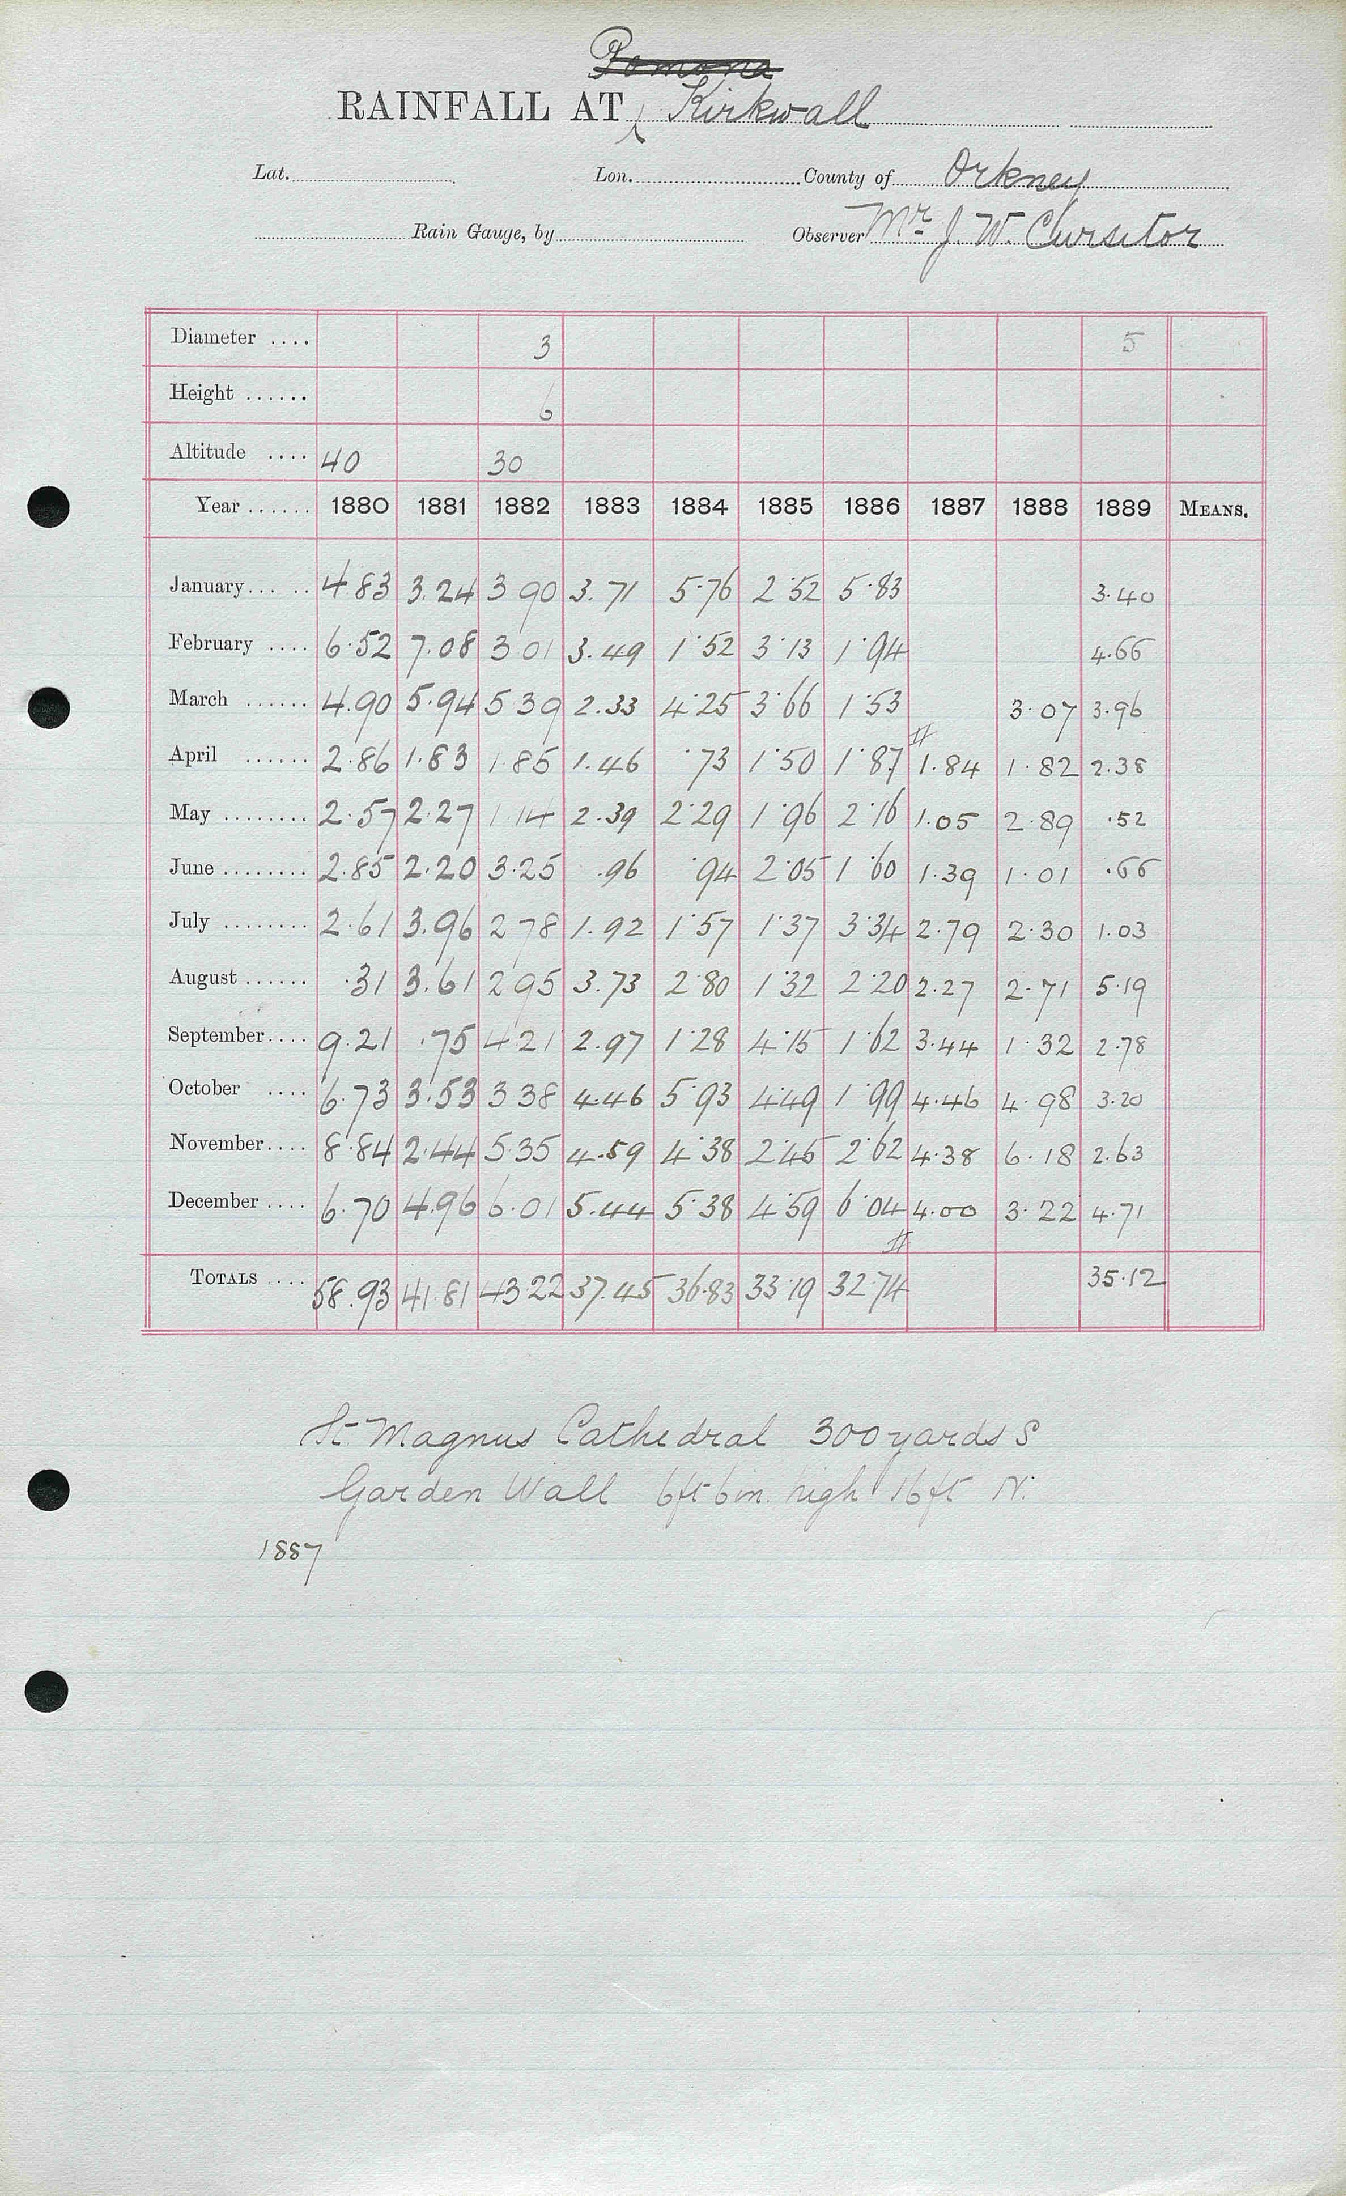 Pomona
RAINFALL AT Kirkwall
Lat. Lon. County of Orkney
Rain Gauge, by Observer Mr J. W. Cursitor
Diameter .... 3 5
Height ...... 6
Altitude .... 40 30
Year ...... 1880 1881 1882 1883 1884 1885 1886 1887 1888 1889 MEANS.
January... .. 4.83 3.24 3 90 3.71 5.76 2.52 5.83 3.40
February .... 6.52 7.08 3 01 3.49 1.52 3.13 1.94 4.66
March ...... 4.90 5.94 5 39 2.33 4.25 3.66 1.53 3.07 3.96
April ...... 2.86 1.83 1.85 1.46 .73 1.50 1.87 # 1.84 1.82 2.38
May ........ 2.57 2.27 1 14 2.39 2.29 1.96 2.16 1.05 2.89 .52
June ........ 2.85 2.20 3.25 .96 .94 2.05 1.60 1.39 1.01 .66
July ........ 2.61 3.96 2 78 1.92 1.57 1.37 3.34 2.79 2.30 1.03
August ...... .31 3.61 2 95 3.73 2.80 1.32 2.20 2.27 2.71 5.19
September.... 9.21 .75 4 21 2.97 1.28 4.15 1.62 3.44 1.32 2.78
October .... 6.73 3.53 3 38 4.46 5.93 4.49 1.99 4.46 4.98 3.20
November.... 8.84 2.44 5.35 4.59 4.38 2.45 2.62 4.38 6.18 2.63
December .... 6.70 4.96 6.01 5.44 5.38 4.59 6.04 4.00 3.22 4.71
#
TOTALS .... 58.93 41.81 43.22 37.45 36.83 33.19 32.74 35.12
St. Magnus Cathedral 300 yards S
Garden Wall 6ft 6in. high 16ft N.
1887